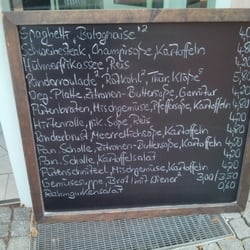 Spaghetti, Bolognaise 4,20
Schweinesteak, Champisoße, Kartoffeln
Hühnerfrikassee, Reis
Rinderroulade, Rotkohl, Thür. Klöße
Veg. Platte, Zitronen-Buttersoße, Garnitur
Putenbraten, Mischgemüse, Pfeffersoße, Kartoffeln
Hirtenrolle, pik. Soße Reis
Rinderbrust Meerrettichsoße, Kartoffeln
Pan. Scholle, Zitronen-Buttersoße, Kartoffeln
Pan. Scholle, Kartoffelsalat
Putenschnitzel, Mischgemüse, Kartoffeln
Gemüsesuppe, Brot (mit Wiener) 3,00 / 3,50
Rahmgurkensalat 0,60